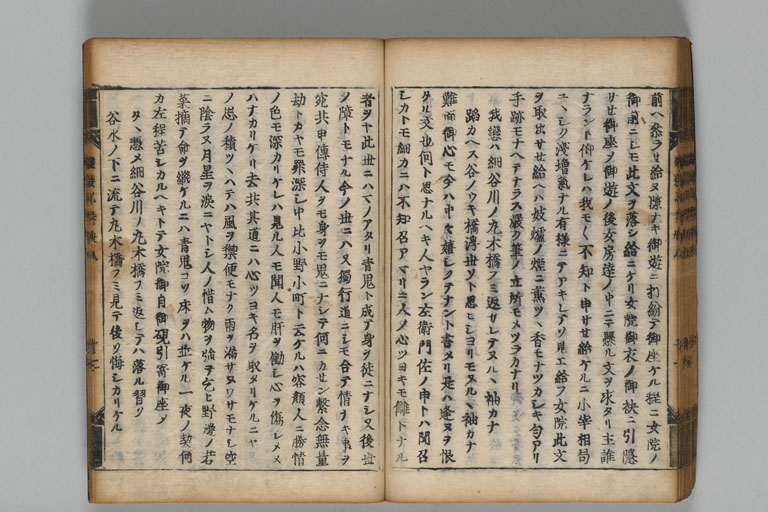 前ヘ参ラセ給ヌ隙ナキ御遊ニ打紛テ御座ケル程ニ女院ノ
御前ニシモ此文ヲ落シ給ニケリ女院御衣ノ御袂ニ引隠
サセ御座ヌ御遊ノ後女房達ノ中ニテ懸ル文ヲ求タリ主誰
ナラント仰ケレハ我モ〱不知ト申サセ給ケルニ小宰相局
ユヽシク浅増氣ナル有様ニテアキレテソ見エ給フ女院此文
ヲ取出サセ給ヘハ妓爐ノ煙ニ薫ツヽ香モナツカシキ匂アリ
手跡モナヘテナラス嚴ク筆ノ立所モメツラカナリ
我戀ハ細谷川ノ丸木橋フミ返サレテヌルヽ袖カナ
蹈カヘス谷ノウキ橋浮世ソト思シヨリモヌルヽ袖カナ
難面御心モ今ハ中々嬉シクテナント書タリ是ハ逢ヌヲ恨
タル文也何ト思ナルヘキ人ヤラン左衛門佐ノ申トハ聞召
シカトモ細カニハ不知召アマリニ人ノ心ツヨキモ讎トナル
者ヲヤ此世ニハマノアタリ青鬼ト成テ身ヲ徒ニナシ又後世
ノ障トモナル今ノ世ニハ又獨行道ニシモ合テ情ナキ事ヲ
宛共申傳侍人ヲモ身ヲモ鬼ニナシテ何ニカセン繋念無量
劫トカヤモ罪深シ中比小野小町ト云ケルハ容顔人ニ勝情
ノ色モ深カリケレハ見ル人モ聞人モ肝ヲ働シ心ヲ傷シメス
ハナカリケリ去共其道ニハ心ツヨキ名ヲ取タリケルニヤ
ノ思ノ積ツヽハテハ風ヲ禦便モナク雨ヲ漏サヌワサモナシ空
ニ陰ラヌ月星ヲ涙ニヤトシ人ノ惜ム物ヲ強テ乞ヒ野邊ノ若
菜摘テ命ヲ繼ケルニハ青鬼コソ床ヲハ並ケル一夜ノ契何
カ左程苦シカルヘキトテ女院御自御硯引寄御座ツヽ
タヽ憑メ細谷川ノ丸木橋フミ返シテハ落ル習ソ
谷水ノ下ニ流テ丸木橋フミ見テ後ソ悔シカリケル